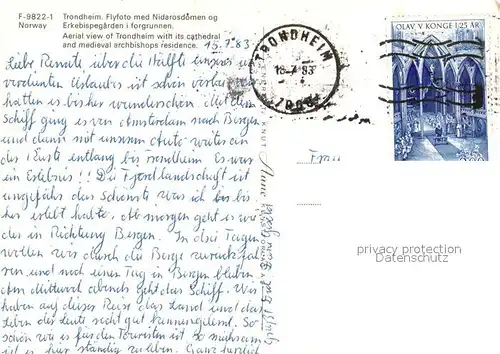 F-9822-1 Trondheim. Flyfoto med Nidarosdomen og
Norway Erkebispegården i forgrunnen.
Aerial view of Trondheim with its cathedral
and medieval archbishops residence.
15.7.83
Liebe Renate über die Hälfte unseres
verdienten Urlaubes ist schon vorbei
hatten es bisher wunderschön. Mit dem
Schiff ging es von Amsterdam nach Bergen
und dann mit unserem Auto weiter an
der Küste entlang bis Trondheim. Es war
ein Erlebnis!! Die Fjordlandschaft ist
ungefähr das Schönste was ich bis
her erlebt hatte. Ab morgen geht es wie
der in Richtung Bergen. In drei Tagen
wollen wir durch die Berge zurückfah
ren und noch einen Tag in Bergen bleiben.
Am Mittwoch abends geht das Schiff. Wir
haben auf dieser Reise das Land und das
Leben der Leute recht gut kennengelernt. So
schön wie es für den Touristen ist so mühsam
ist es hier ständig zu leben. Ganz herzlich
KNUT AUNE KUNSTFORLAG
TRONDHEIM
18-7 83
OLAV V KONGE I 25 ÅR
Frau
privacy protection
Datenschutz